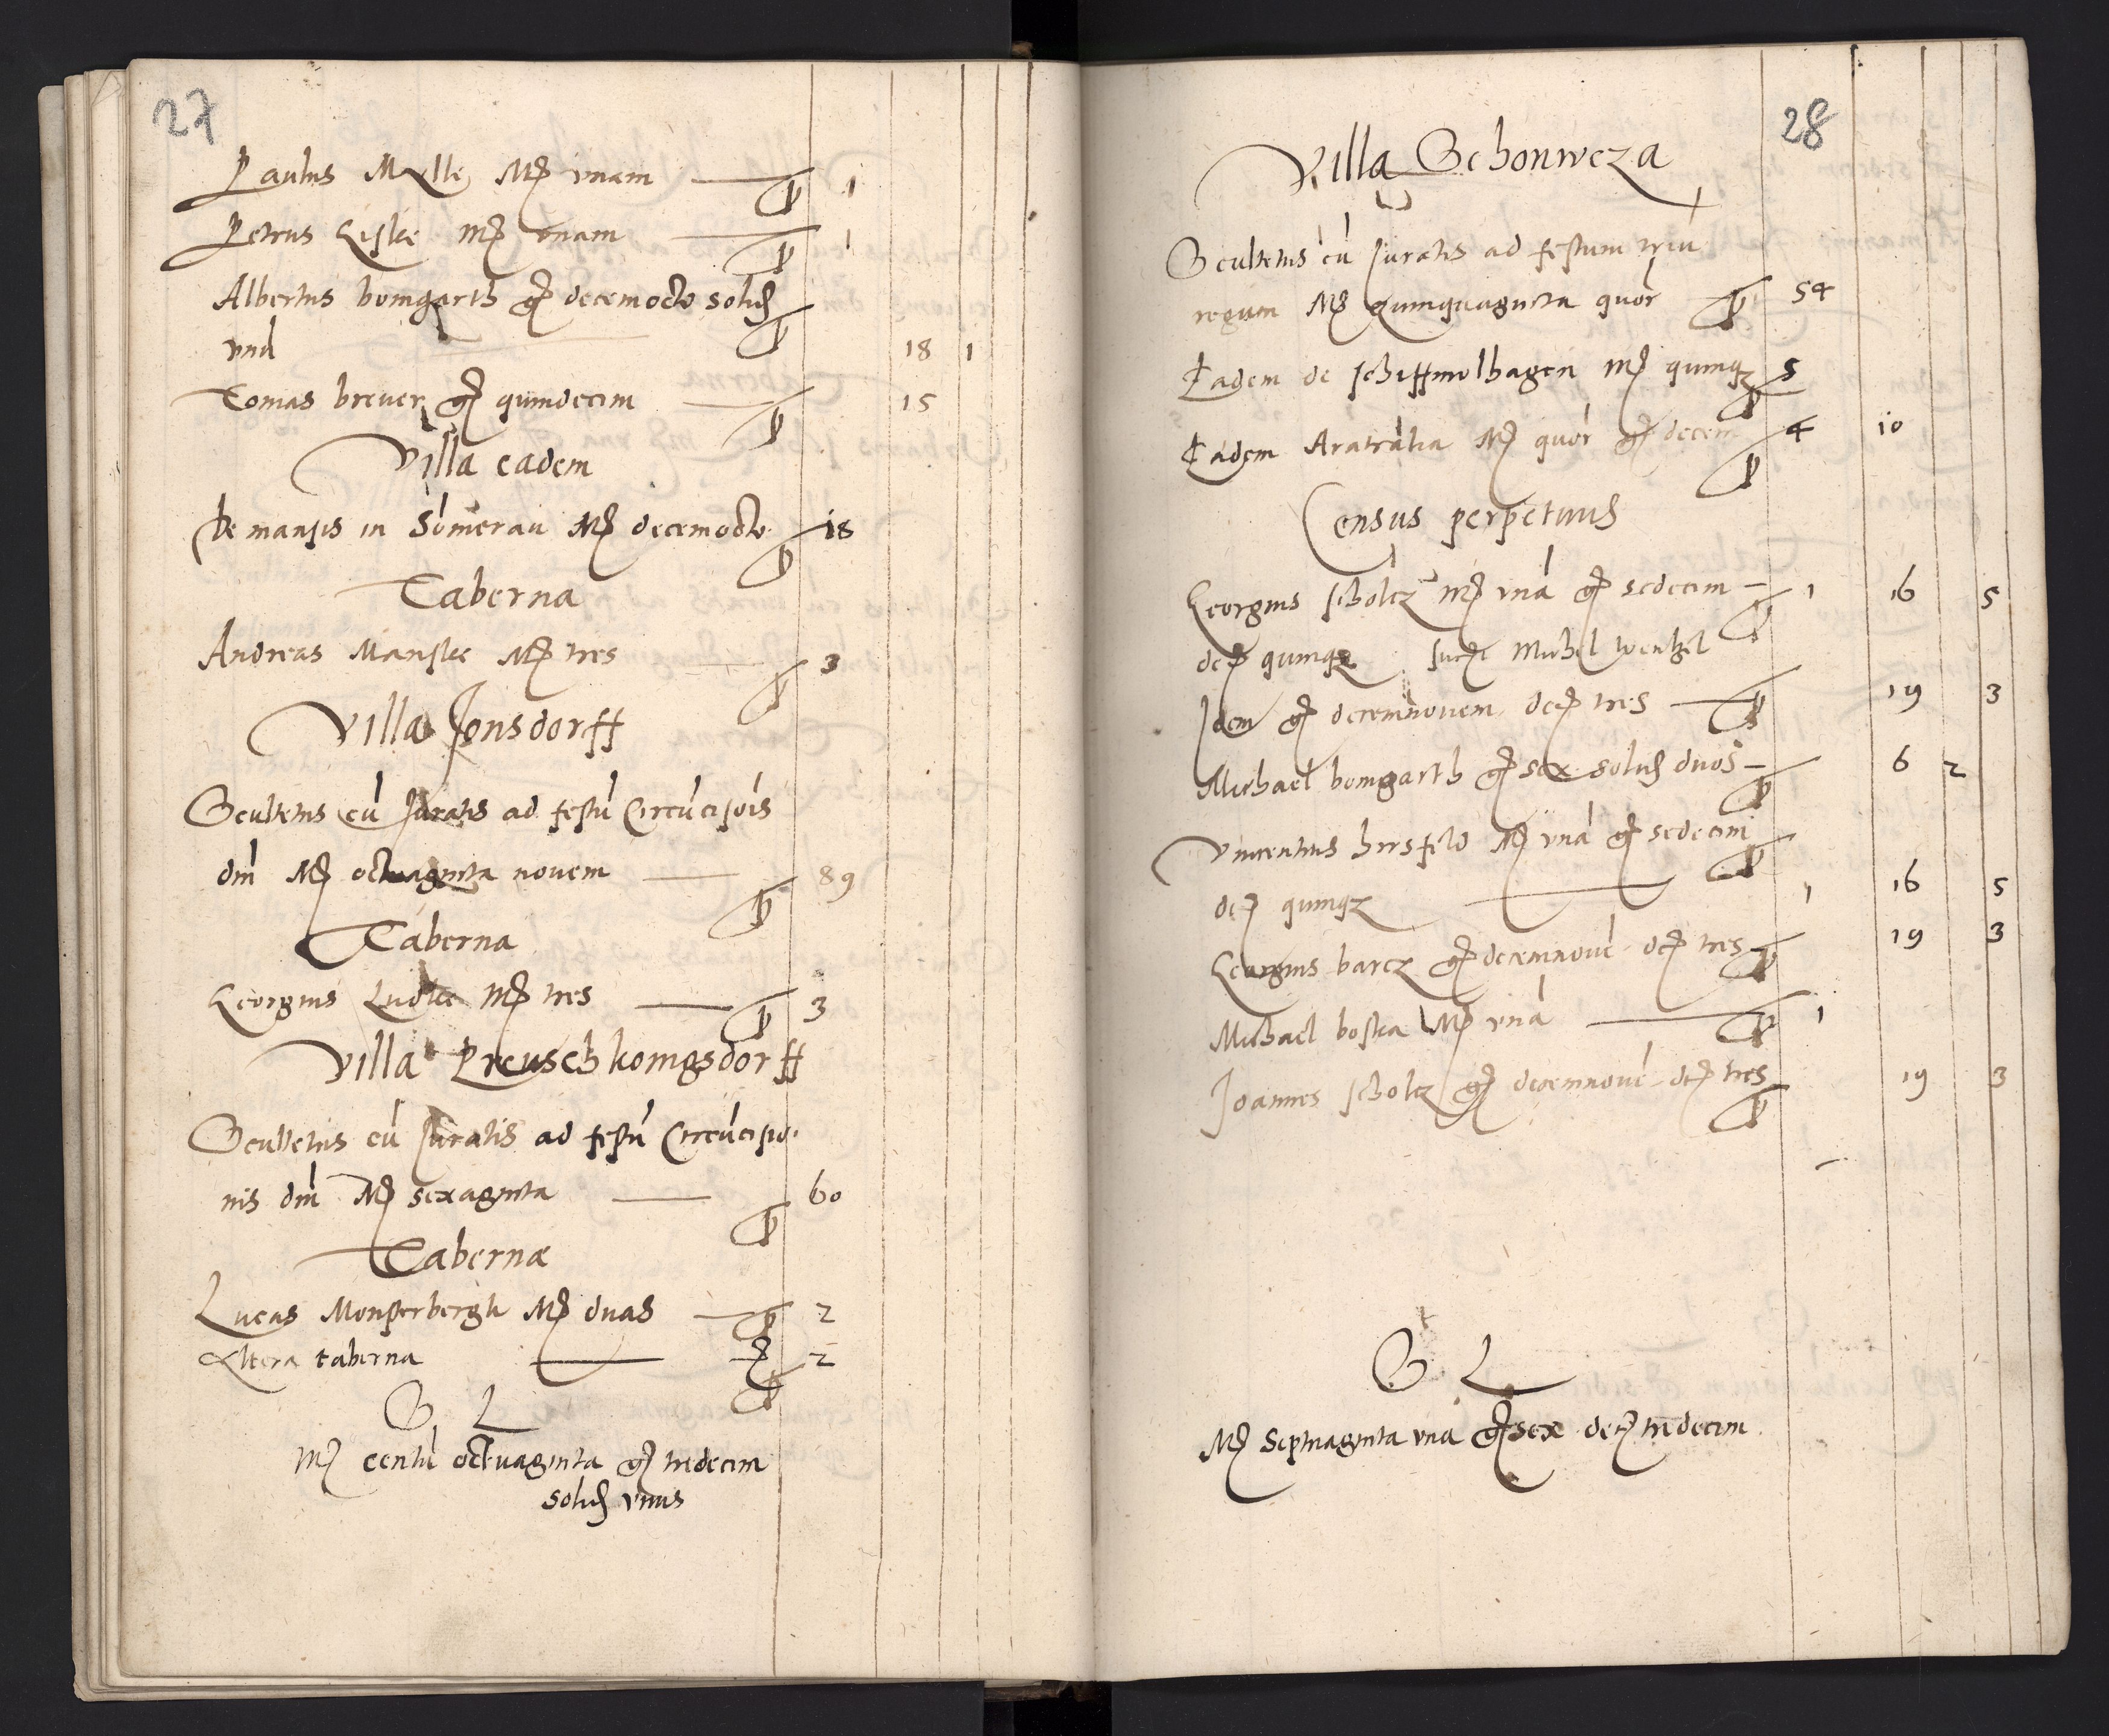 27
Paulus Mylle M͡ unam 1
Petrus Liske M͡ unam 1
Albertus bomgarth g͡ decemocto solid͡
und 18 1
Tomas brever g͡ quindecim 15
Villa eadem
De mansis in Somerau M͡ decemocto 18
Taberna
Andreas Manske M͡ tres 3
Villa Jonsdorff
Scultetus cū Juratis ad festū Circūcisōis
dnī M͡ octuaginta novem 89
Taberna
Georgius Ludke M͡ tres 3
Villa Preuschkonigsdorff
Scultetus cū Juratis ad festū Circūcisio
nis dnī M͡ sexaginta 60
Tabernæ
Lucas Monsterbergk M͡ duas 2
Altera taberna 2
S. L
M͡ centū octuaginta g͡ tredecim
solid͡ unus
28
Villa Schonweza
Scultetus cū Juratis ad festum triū
regum M͡ quinquaginta quōr 54
Eadem de schiffmolhagen M͡ quinqz 5
Eadem Aratralia M͡ quōr g͡ decem 4 10
Census perpetuus
Georgius scholcz M͡ unā g͡ sedecim 1 16 5
de͡ quinqz succ͡ Michel wentzel
Idem g͡ decemnovem de͡ tres 19 3
Michael bomgarth g͡ sex solid͡ duos 6 2
Vincentius hirsfeld M͡ unā g͡ sedecim
de͡ quinqz 1 16 5
Georgius barcz g͡ decemnovē de͡ tres 19 3
Michael boska M͡ unā 1
Joannes scholcz g͡ decemnovē de͡ tres 19 3
S. L
M͡ Septuaginta una g͡ sex de͡ tredecim